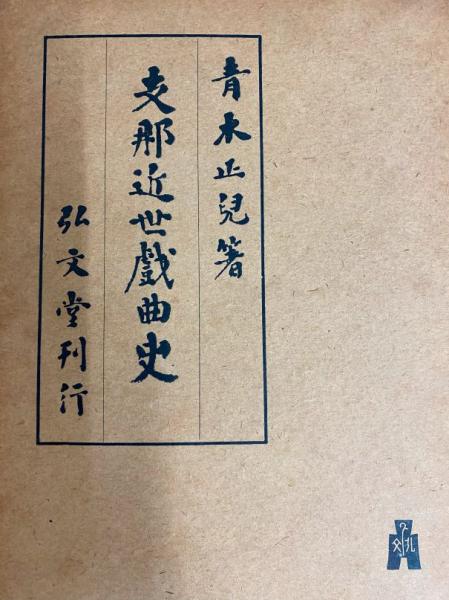 青木正兒箸
支那近世戲曲史
弘文堂刊行